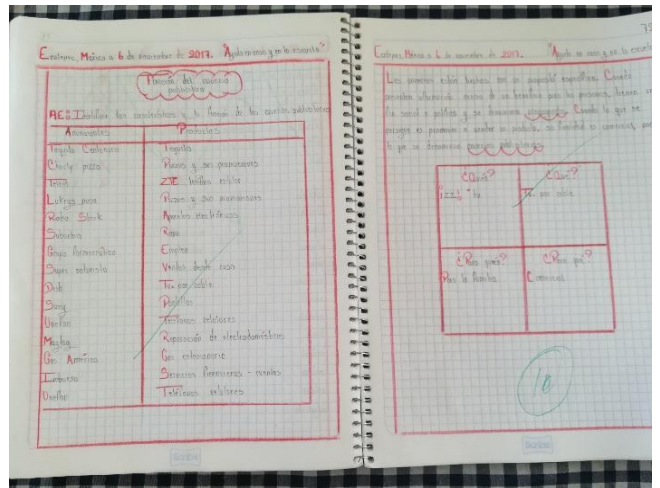 Ecatepec, México a 6 de noviembre de 2017. "Ayuda en casa y en la escuela"
Función del anuncio
publicitario
AE: Identificar las características y la función de los anuncios publicitarios
Anunciantes Productos
Tequila Centenario Tequila
Charly pizza Pizzas y sus promociones
ZTE teléfono celular
Lukings pizza Pizzas y sus promociones
Radio Shack Aparatos electrónicos
Suburbia Ropa
Grupo farmacéutico Empleo
Ventas desde casa
Dish Tv. por cable
Sony Pantallas
Unefon Teléfonos celulares
Maytag Reparación de electrodomésticos
Gas América Gas estacionario
Inbursa Servicios financieros - cuentas
Unefon Teléfonos celulares
Scribe
72
Ecatepec, México a 6 de noviembre de 2017. "Ayuda en casa y en la escuela
Los anuncios están hechos con un propósito específico. Cuando
muestra información acerca de un beneficio para las personas, tienen un
fin social o político y se denomina Cuando lo que se
persigue es promover o vender un producto, su finalidad es comercial, por
lo que se denomina anuncios publicitarios
¿Quién? ¿Qué?
Tv. por cable
¿Para quién? ¿Para qué?
Para la familia Comercial
10
Scribe